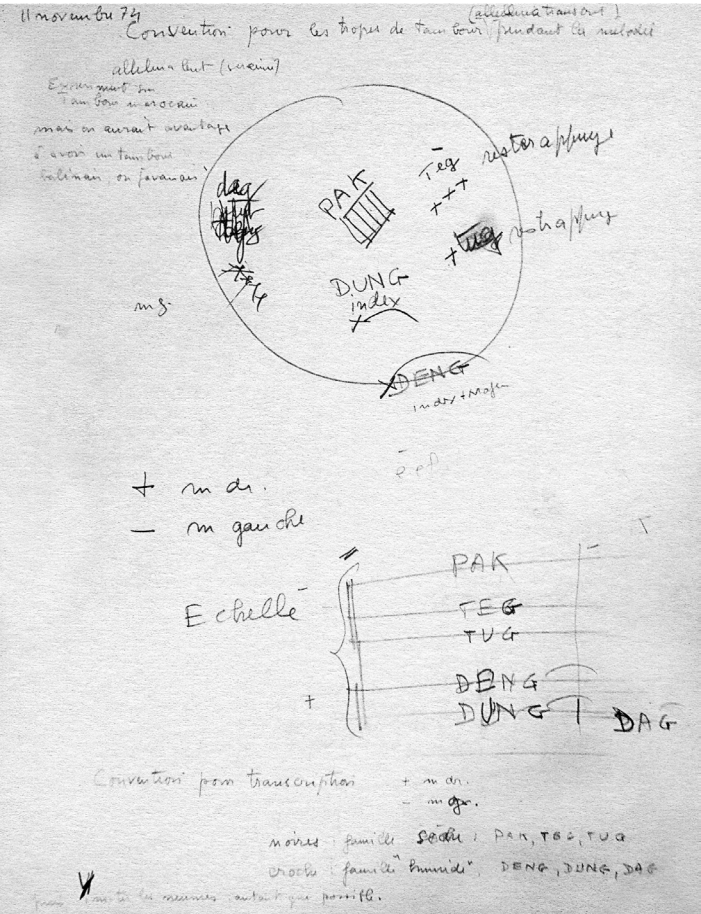 11 novembre 74
Convention pour les tropes de tambour pendant les melodies
alleluia
Experiment sur
tambour marocain
mais on aurait avantage
à avoir un tambour
balinais, ou javanais
PAK
Tēg rester appuyé
+++
+ Tug rest appuyé
DUNG
index
mg
DENG
index + majeur
+ m dr.
— m gauche
Echelle
PAK
TEG
TUG
DENG
+
DUNG DAG
Convention pour transcription + m dr.
- m g.
noires : famille sèche : PAK, TEG, TUG
croche : famille "humide", DENG, DUNG, DAG
les neumes autant que possible.